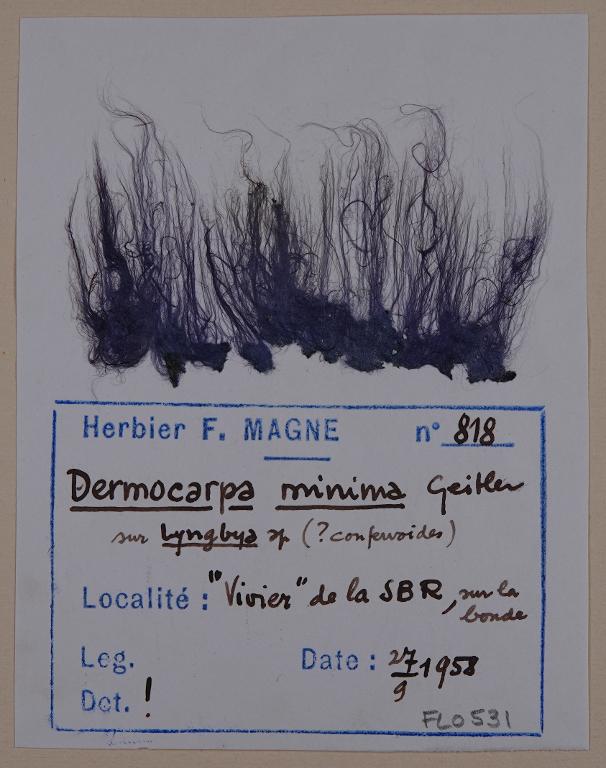 Herbier F. MAGNE n° 818
Dermocarpa minima Geitler
sur Lyngbya sp (? confervoides)
Localité : "Vivier" de la SBR, sur la
bonde
Leg. Date : 27/9 1958
Det. !
FLO531